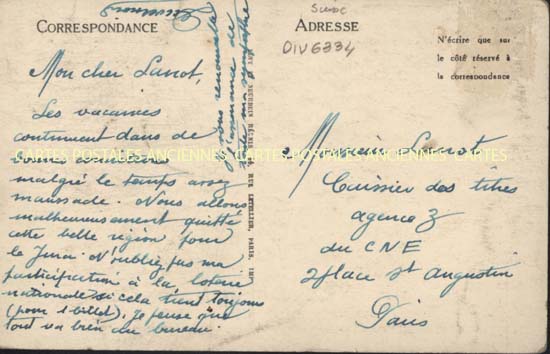 CORRESPONDANCE
Mon cher Lanot,
Les vacances
continuent dans de
malgré le temps assez
maussade. Nous allons
malheureusement quitté
cette belle région pour
le Jura. N'oubliez pas ma
participation à la loterie
nationale si cela tient toujours
(pour 1 billet). Je pense que
tout va bien au bureau.
Je vous renouvelle
l'assurance de
toute ma sympathie
RUE LETELLIER, PARIS, IMP.
ADRESSE
DIV6334
N'écrire que sur
le côté réservé à
la correspondance
Monsieur Lanot
Caissier des titres
agence Z
du CNE
2 place St Augustin
Paris
CARTES POSTALES ANCIENNES CARTES POSTALES ANCIENNES CARTES